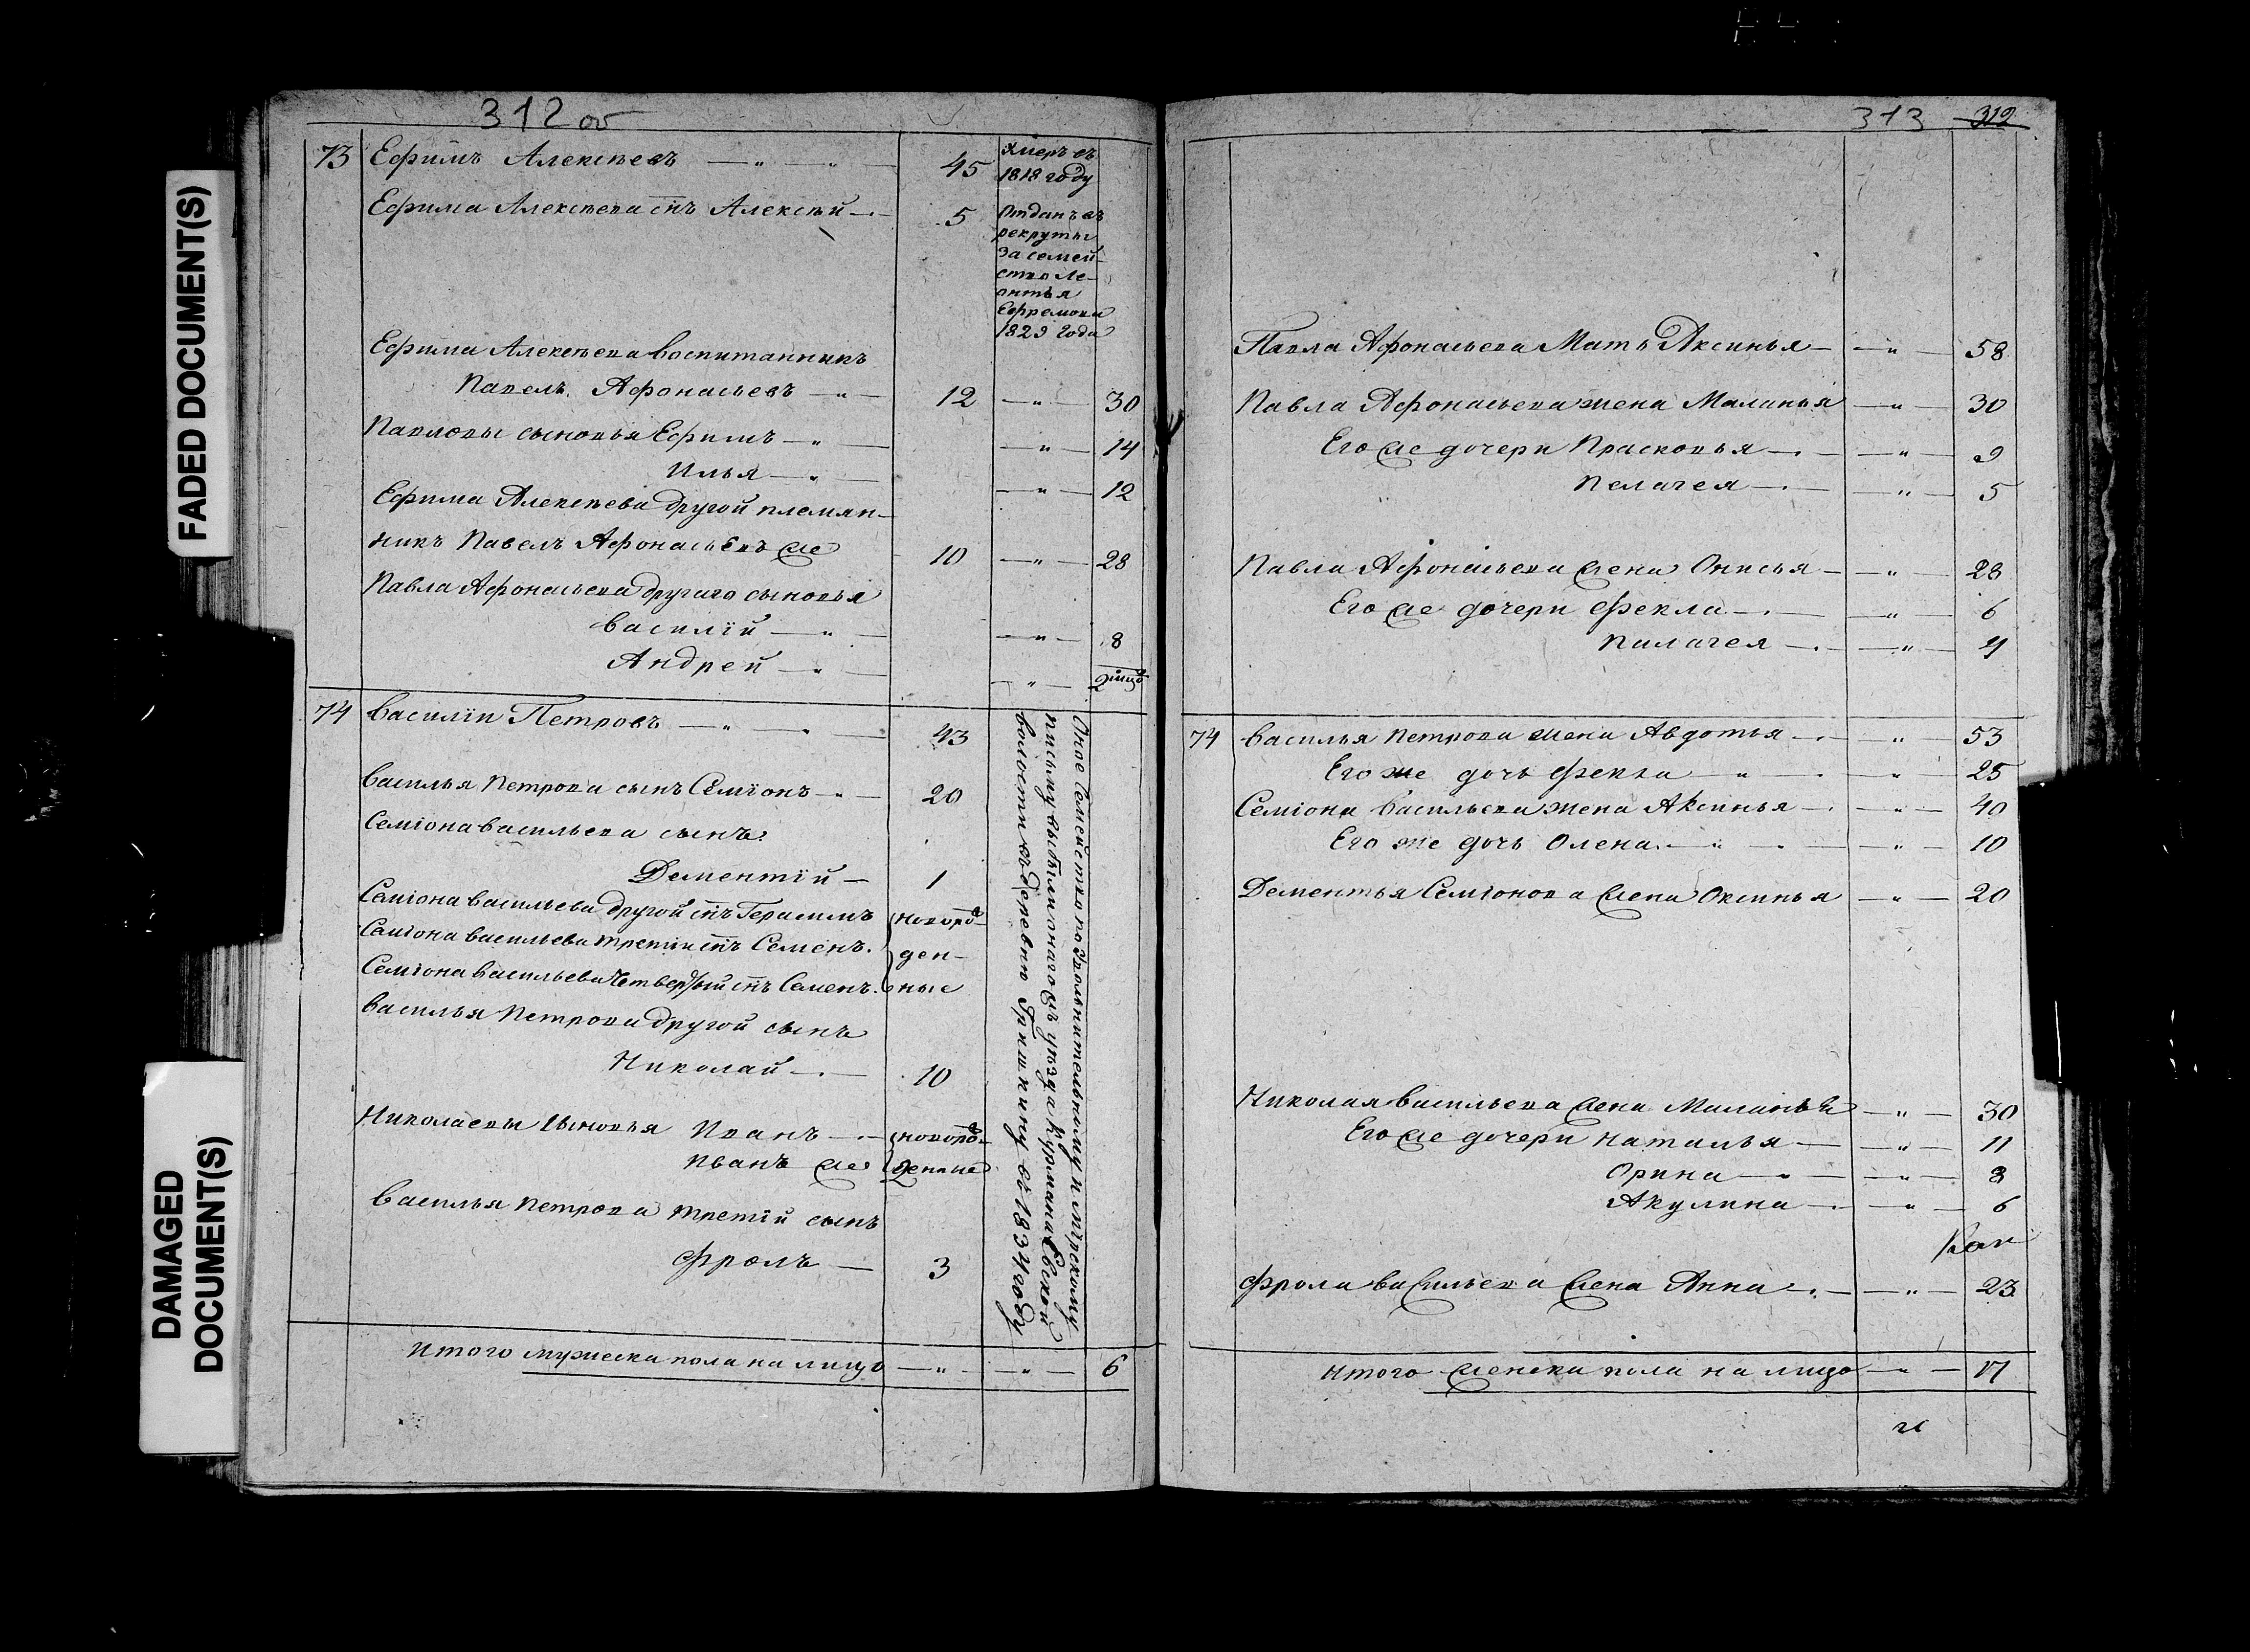 FADED DOCUMENT(S)
DAMAGED
DOCUMENT(S)
312 об
73 Ефимъ Алексѣевъ — „ — „ — 45 Умеръ въ
1818 году
Ефима Алексѣева снъ Алексѣй — 5 Отданъ въ
рекруты
за семей-
ство Ле-
онтья
Ефремова
1829 года
Ефима Алексѣева воспитанникъ
Павелъ Афонасьевъ — „ — 12 — „ — 30
Павловы сыновья Ефимъ — „ — — „ — 14
Илья — „ — — „ — 12
Ефима Алексѣева другой племян-
никъ Павелъ Афонасьевъ же 10 — „ — 28
Павла Афонасьева другаго сыновья
Василій — „ — — „ — 8
Андрей — „ — — „ — 2
74 Василіи Петровъ — „ — „ — 43
Василья Петрова сынъ Семіонъ — „ — 20
Семіона Васильева сынъ
Дементій — 1
Семіона Васильева другой снъ Герасимъ новорож-
Семіона Васильева третіи снъ Семенъ. ден-
Семіона Васильева четвертый снъ Семенъ. ные
Василья Петрова другой сынъ
Николай — . — 10
Николаевы сыновья Иванъ — . — новорож-
Иванъ же 2 денные
Василья Петрова третій сынъ
Фролъ — 3
Оное Семейство по Увольнительному и мірскому
письму выбыли онагожъ уѣзда
волости въ деревню Гришкину въ 1834 году
Итого мужеска пола на лицо — „ — — „ — 6
313 312
Павла Афонасьева Мать Аксинья — — „ — 58
Павла Афонасьева жена Маланья — „ — 30
Его же дочери Прасковья — . — — „ — 9
Пелагея — . — — „ — 5
Павла Афонасьева жена Онисья — — „ — 28
Его же дочери Фекла — . — — „ — 6
Палагея — . — — „ — 4
74 Василья Петрова жена Авдотья — . — „ — 53
Его же дочь Фекла — „ — . — „ — 25
Семіона Васильева жена Аксинья — . — „ — 40
Его же дочь Олена. — „ — . — „ — 10
Дементья Семіонова жена Оксинья — „ — 20
Николая Васильева жена Маланья — „ — 30
Его же дочери Наталья — — „ — 11
Орина — „ — — „ — 8
Акулина — . — „ — 6
Фрола Васильева жена Анна — . — — „ — 23
Итого женска пола на лицо — „ — 17